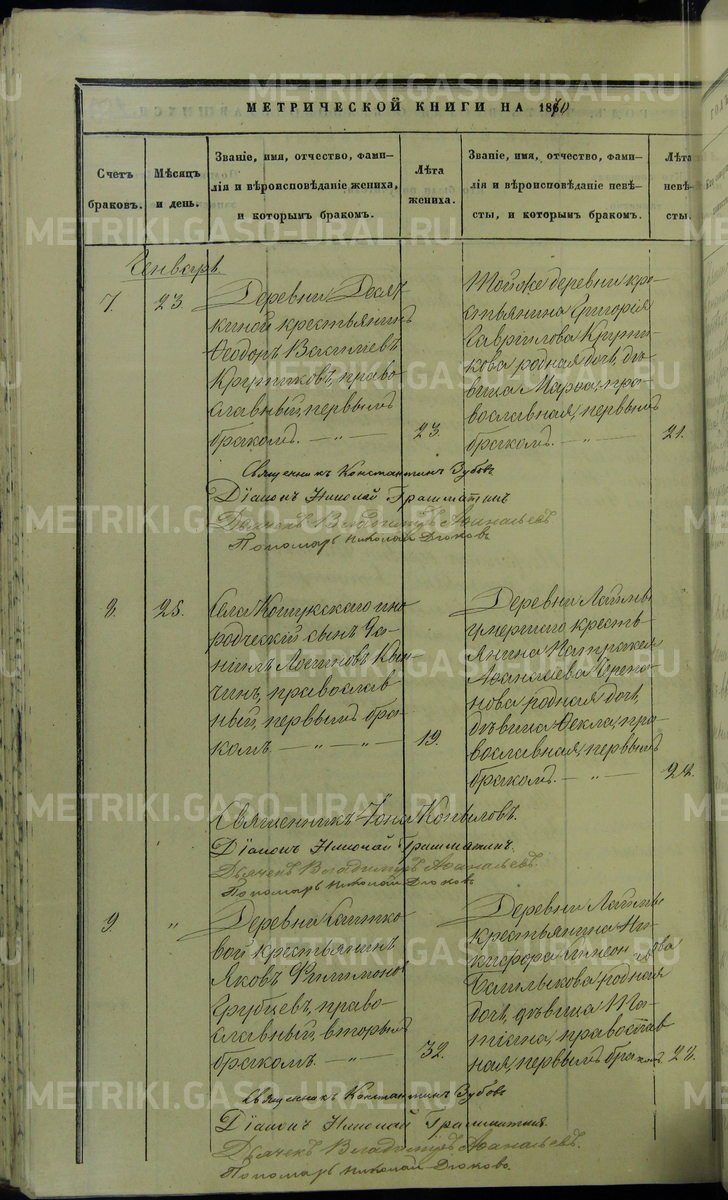 МЕТРИЧЕСКОЙ КНИГИ НА 1870
Счетъ браковъ.
Мѣсяцъ и день.
Званіе, имя, отчество, фами-
лія и вѣроисповѣданіе жениха,
и которымъ бракомъ.
Лѣта
жениха.
Званіе, имя, отчество, фами-
лія и вѣроисповѣданіе невѣ-
сты, и которымъ бракомъ.
Лѣта
невѣ-
сты.
Генварь
7. 23
Деревни
киной крестьянинъ
Ѳеодоръ Василіевъ
православный, первымъ
бракомъ. — „ — 23.
Тойже деревни кре-
стьянина Григорія
Гавріилова
родная дочь, дѣ-
вица Марѳа, пра-
вославная, первымъ
бракомъ. — „ — 21.
Священникъ Константинъ Зубовъ
Діаконъ Николай Грамматинъ
Дьячекъ Владиміръ Аѳанасьевъ
Пономарь Николай Дюковъ
8. 25.
Села Кошукскаго ино-
родческій сынъ Да-
ніилъ Логиновъ
православ-
ный, первымъ бра-
комъ. — „ — „ — 19.
Деревни
умершаго кресть-
янина
Аѳанасьева
родная дочь,
дѣвица Ѳекла, пра-
вославная, первымъ
бракомъ. — „ —
Священникъ Іона Копыловъ.
Діаконъ Николай Грамматинъ.
Дьячекъ Владиміръ Аѳанасьевъ.
Пономарь Николай Дюковъ
9. „
Деревни
крестьянинъ
Яковъ Филимоновъ
право-
славный, вторымъ
бракомъ. — „ — 32.
Деревни
крестьянина Ни-
кифора
родная
дочь, дѣвица Та-
тіана, православ-
ная, первымъ бракомъ.
Священникъ Константинъ Зубовъ
Діаконъ Николай Грамматинъ.
Дьячекъ Владиміръ Аѳанасьевъ.
Пономарь Николай Дюковъ.
METRIKI.GASO-URAL.RU